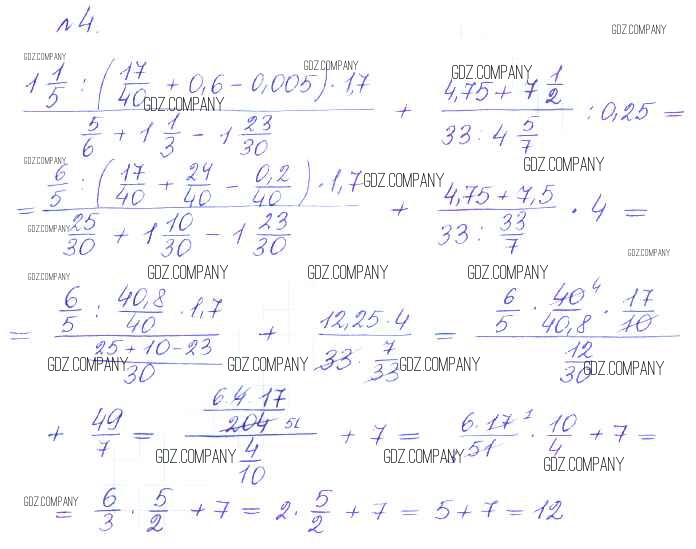 №4.
GDZ.COMPANY
1 1/5 : (17/40 + 0,6 - 0,005) · 1,7 / 5/6 + 1 1/3 - 1 23/30 + 4,75 + 7 1/2 / 33 : 4 5/7 : 0,25 =
GDZ.COMPANY GDZ.COMPANY GDZ.COMPANY GDZ.COMPANY
= 6/5 : (17/40 + 24/40 - 0,2/40) · 1,7 / 25/30 + 1 10/30 - 1 23/30 + 4,75 + 7,5 / 33 : 33/7 · 4 =
GDZ.COMPANY GDZ.COMPANY GDZ.COMPANY
GDZ.COMPANY GDZ.COMPANY
GDZ.COMPANY GDZ.COMPANY GDZ.COMPANY GDZ.COMPANY
= 6/5 : 40,8/40 · 1,7 / 25+10-23/30 + 12,25·4 / 33 · 7/33 = 6/5 · 40 4/40,8 · 17/10 / 12/30
GDZ.COMPANY GDZ.COMPANY GDZ.COMPANY GDZ.COMPANY
+ 49/7 = 6·4·17 / 204 51 / 4/10 + 7 = 6·17 1/51 · 10/4 + 7 =
GDZ.COMPANY GDZ.COMPANY GDZ.COMPANY
GDZ.COMPANY
= 6/3 · 5/2 + 7 = 2 · 5/2 + 7 = 5 + 7 = 12